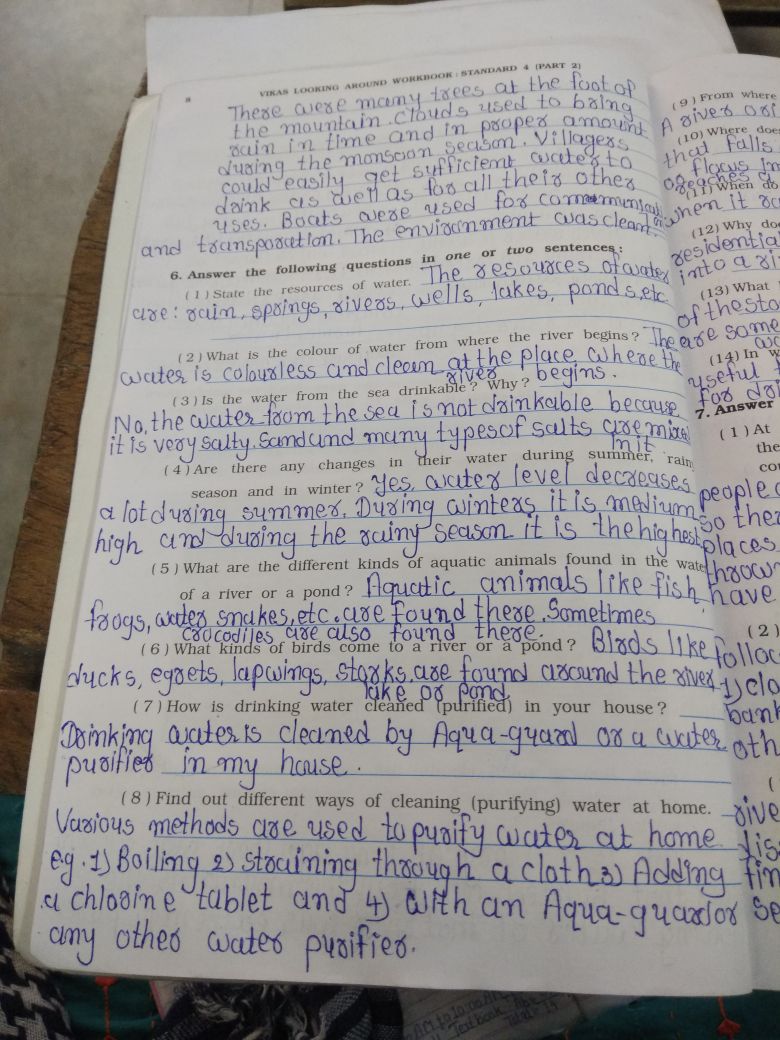 8
VIKAS LOOKING AROUND WORKBOOK : STANDARD 4 (PART 2)
There were many trees at the foot of
the mountain. Clouds used to bring
rain in time and in proper amount
during the monsoon season. Villagers
could easily get sufficient water to
drink as well as for all their other
uses. Boats were used for
and transporation. The environment was clean.
6. Answer the following questions in one or two sentences :
(1) State the resources of water. The resources of water
are : rain, springs, rivers, wells, lakes, ponds, etc.
(2) What is the colour of water from where the river begins ? The
water is colourless and clean at the place where the
river begins.
(3) Is the water from the sea drinkable ? Why ?
No, the water from the sea is not drinkable because
it is very salty. Sand and many types of salts are mixed
in it
(4) Are there any changes in their water during summer, rainy
season and in winter ? Yes, water level decreases
a lot during summer. During winters it is medium
high and during the rainy season it is the highest
(5) What are the different kinds of aquatic animals found in the water
of a river or a pond ? Aquatic animals like fish,
frogs, water snakes, etc. are found there. Sometmes
crocodiles are also found there.
(6) What kinds of birds come to a river or a pond ? Birds like
ducks, egrets, lapwings, storks, are found around the river
lake or pond
(7) How is drinking water cleaned (purified) in your house ?
Drinking water is cleaned by Aqua-guard or a water
purifier in my house.
(8) Find out different ways of cleaning (purifying) water at home.
Various methods are used to purify water at home
eg. 1) Boiling 2) Straining through a cloth 3) Adding
a chlorine tablet and 4) With an Aqua-guard or
any other water purifier.
(9) From where
A river ori
(10) Where doe
that falls
flows in
reaches a
(11) When do
when it
(12) Why do
residentia
into a ri
(13) What
of the sto
are some
(14) In w
useful
for dri
7. Answer
(1) At
the
co
people
so the
places
throw
have
(2)
follo
1) clo
bank
oth
(
rive
dis
fin
se